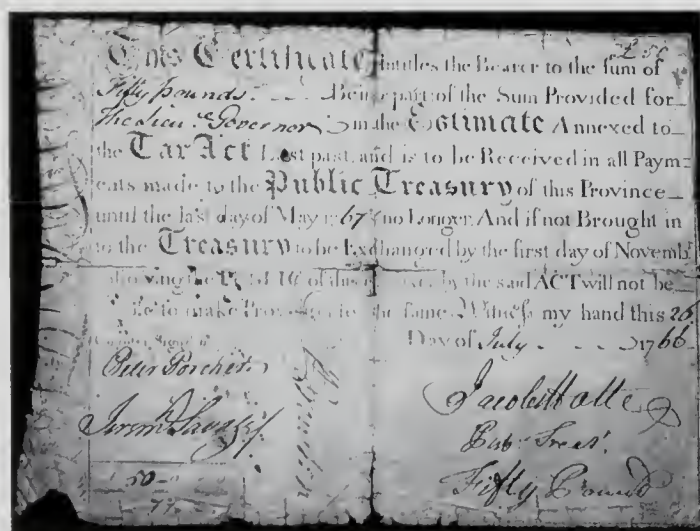 £ 50
This Certificate Intitles the Bearer to the sum of
Fifty pounds. Being part of the Sum Provided for
the Governor in the Estimate Annexed to
the Tax Act Last past, and is to be Received in all Paym=
ents made to the Public Treasury of this Province
until the last day of May 1767 & no Longer. And if not Brought in
to the Treasury to be Exchanged by the first day of Novemb.
following the of this by the said ACT will not be
to make Provision for the same. Witness my hand this 26
Day of July 1766
Peter Porcher
Jacob Motte
Jerem Savage
Pub. Treas.
50
Fifty Pounds